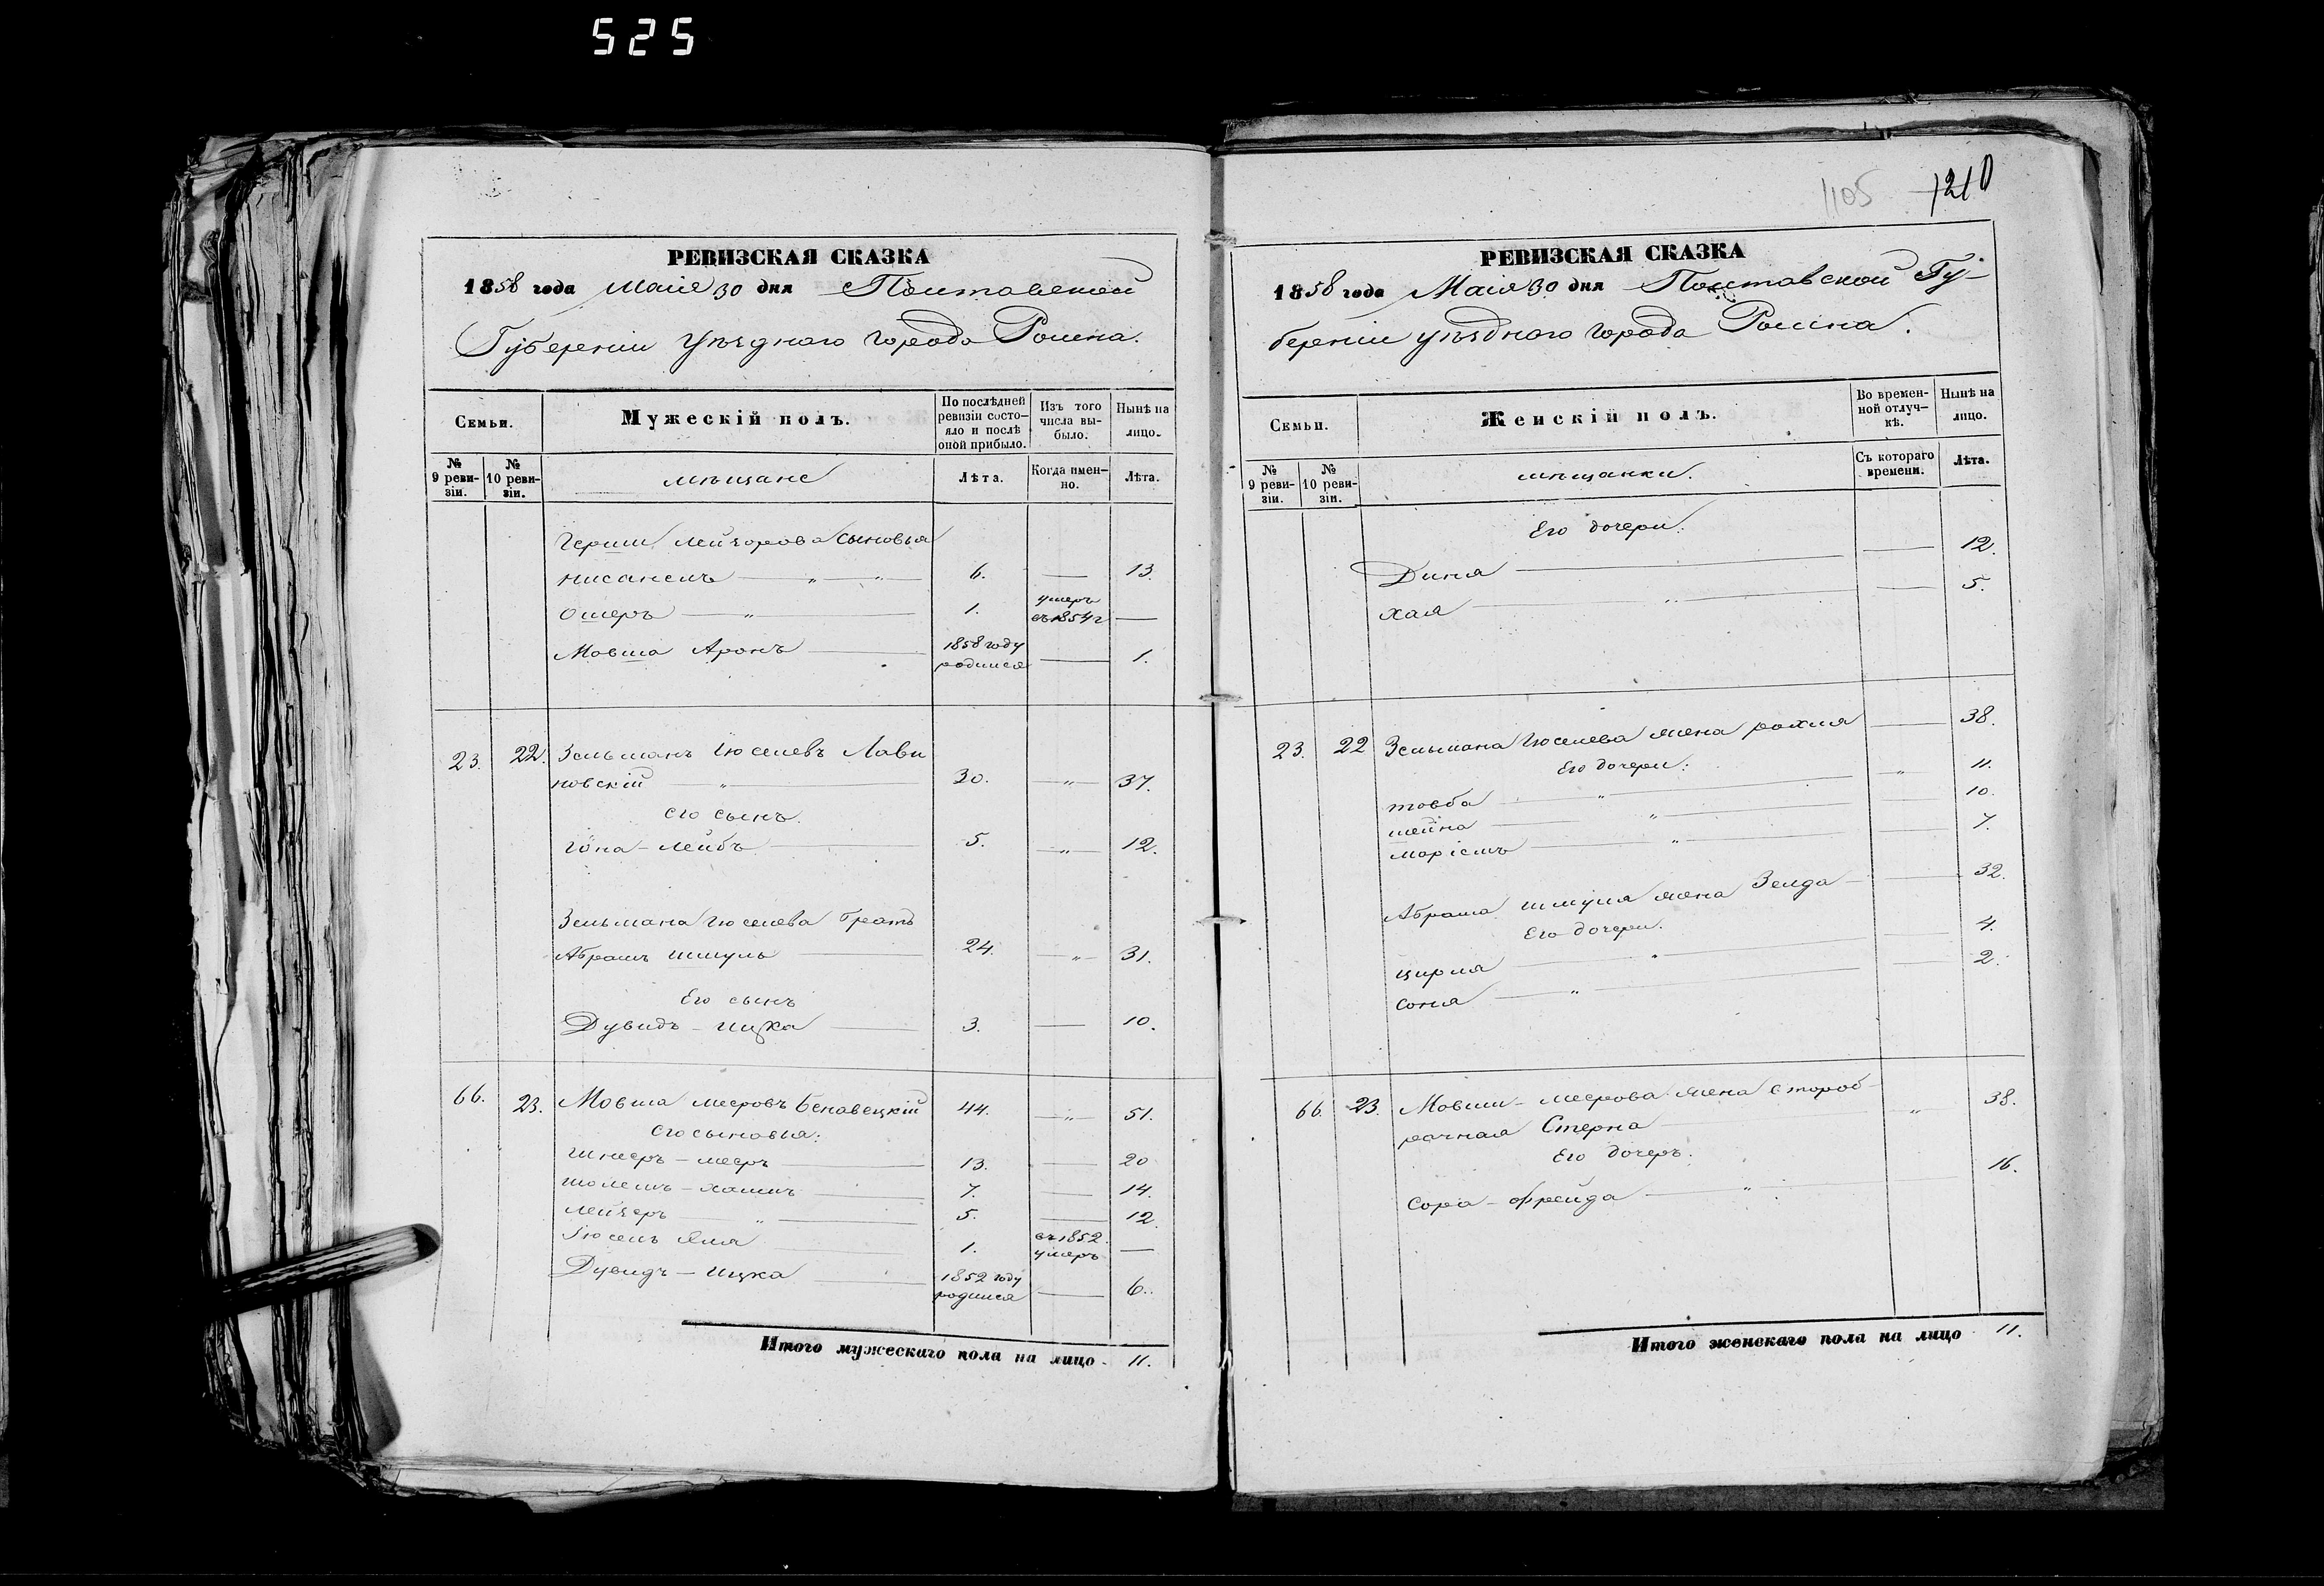 525
РЕВИЗСКАЯ СКАЗКА
1858 года Маія 30 дня Полтавской
Губерніи уѣзднаго города Ромна.
Семьи.
Мужескій полъ.
По послѣдней ревизіи состояло и послѣ оной прибыло.
Изъ того числа выбыло.
Нынѣ на лицо.
№ 9 ревизіи.
№ 10 ревизіи.
мѣщане
Лѣта.
Когда именно.
Лѣта.
Герши Лейзорова сыновья
Нисанелъ — „ — „ — 6. — 13.
Ошеръ — „ — 1. умеръ въ 1854 г —
Мовша Аронъ — 1858 году родился — 1.
23. 22. Зельманъ Іоселевъ Лави
новскій — „ — 30. — „ — 37.
его сынъ.
Іона-Лейбъ — 5. — „ — 12.
Зельмана Іоселева братъ
Абрамъ Шмуль — 24. — „ — 31.
Его сынъ
Дувидъ-Ицка — 3. — 10.
66. 23. Мовша Мееровъ 44. — „ — 51.
его сыновья:
Шнееръ-Мееръ — 13. — 20
Шолемъ-Хаимъ — 7. — 14.
Лейзеръ — „ — 5. — 12.
Іосель — 1. въ 1852. умеръ —
Дувидъ-Ицка — 1852 году родился — 6.
Итого мужескаго пола на лицо - 11.
1105 1210
РЕВИЗСКАЯ СКАЗКА
1858 года Маія 30 дня Полтавской Гу-
берніи уѣзднаго города Ромна.
Семьи.
Женскій полъ.
Во временной отлучкѣ.
Нынѣ на лицо.
№ 9 ревизіи.
№ 10 ревизіи.
мѣщанки.
Съ котораго времени.
Лѣта.
Его дочери.
Дина — — 12.
Хая — „ — — 5.
23. 22 Зельмана Іоселева жена Рохля — 38.
Его дочери:
Товба — „ — „ — 11.
Шейна — „ — 10.
Маріемъ — „ — — 7.
Абрама Шмуля жена Зелда — — 32.
Его дочери.
Цирля — „ — — 4.
Соня — „ — — 2.
66. 23. Мовши-Меерова жена второб-
рачная Стерна — „ — 38.
Его дочерь.
Сора-Фрейда — „ — 16.
Итого женскаго пола на лицо 11.